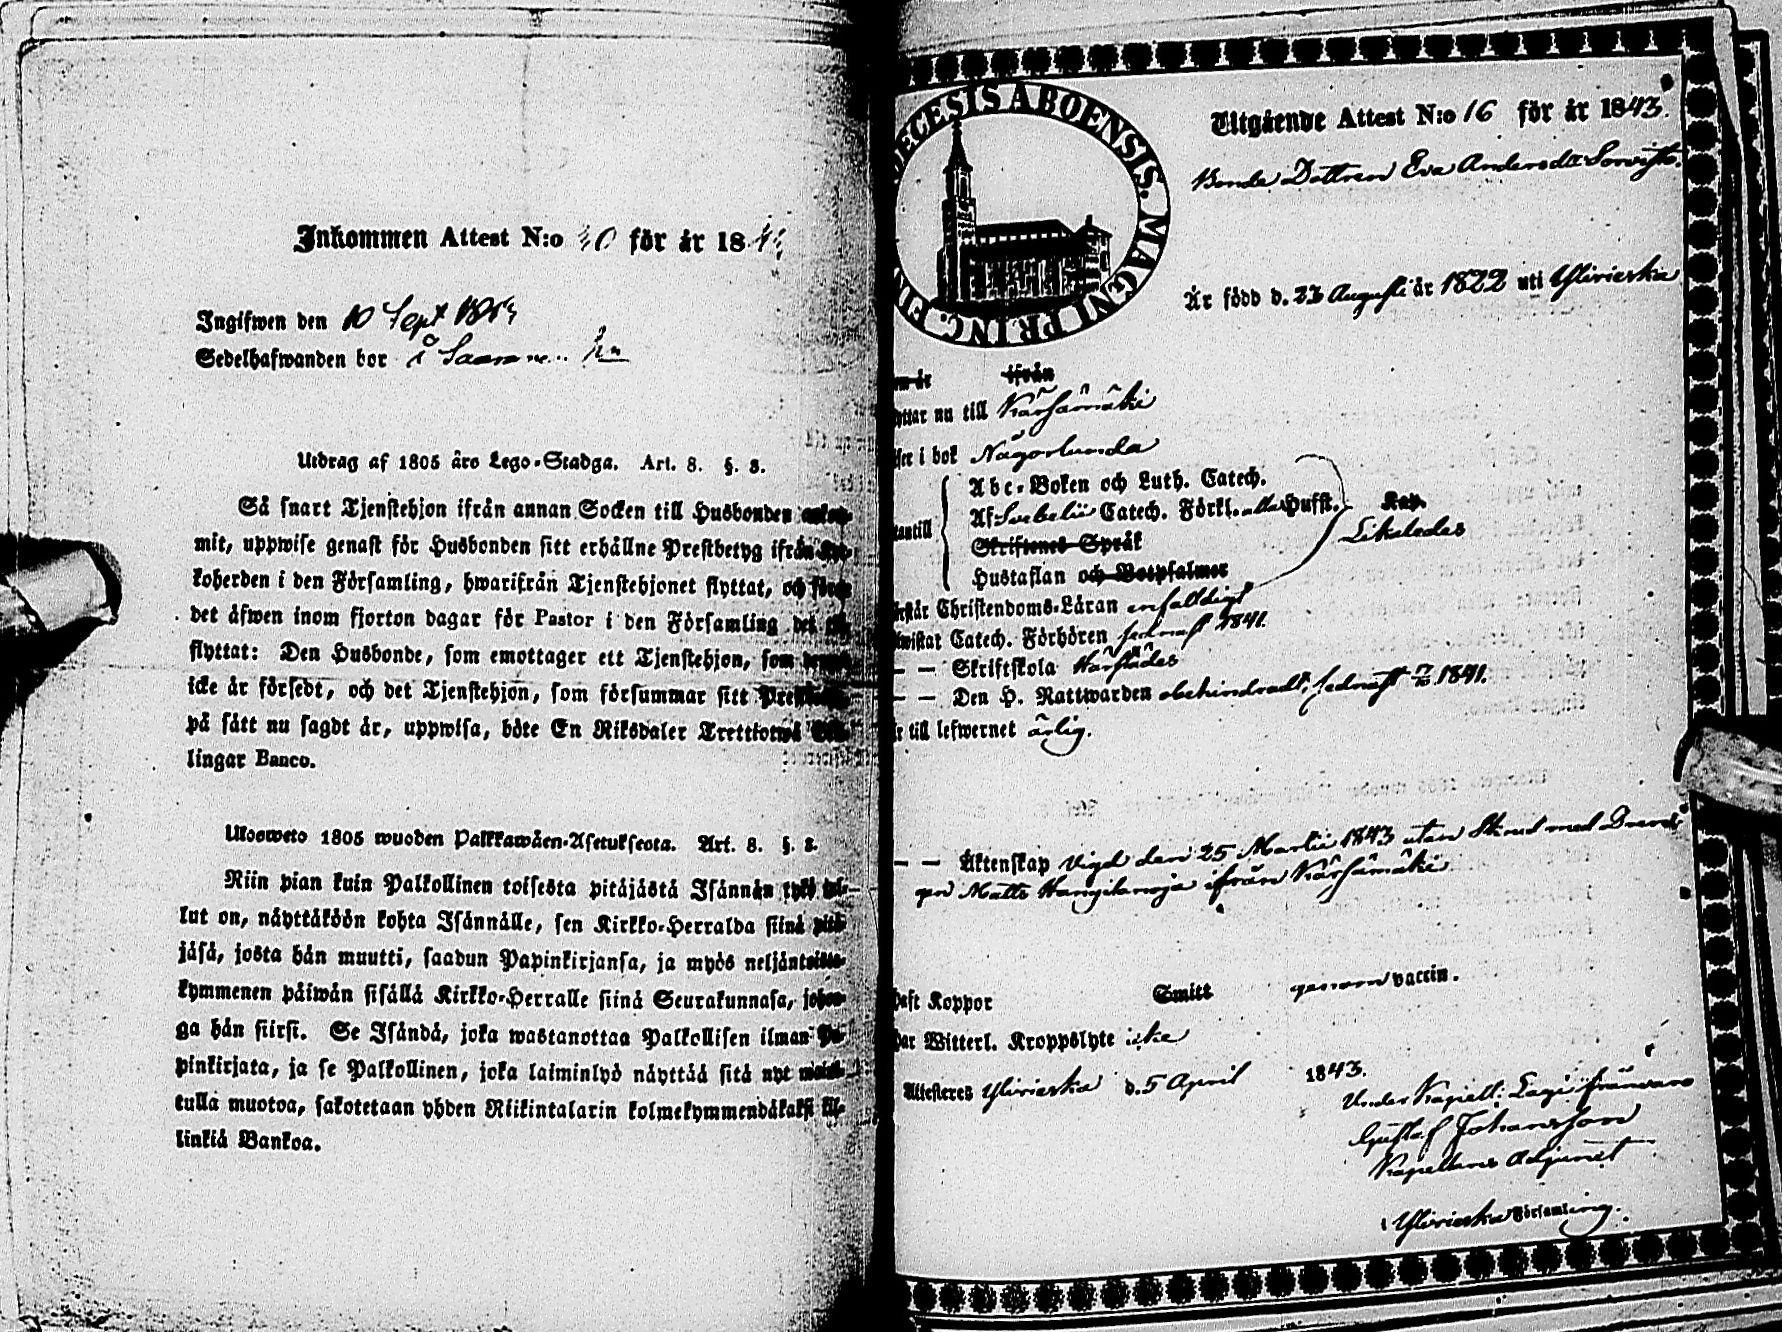 Inkommen Attest N:o 40 för år 18
Ingifwen den 10 Sept
Sedelhafwanden bor i
Utdrag af 1805 års Lego-Stadga. Art. 8. §. 8.
Så snart Tjenstehjon ifrån annan Socken till Husbonden
mit, uppwise genast för Husbonden sitt erhållne Prestbetyg ifrån
koherden i den Församling, hwarifrån Tjenstehjonet flyttat, och
det åfwen inom fjorton dagar för Pastor i den Församling det
flyttat: Den Husbonde, som emottager ett Tjenstehjon, som
icke år försedt, och det Tjenstehjon, som försummar sitt
på sått nu sagdt år, uppwisa, böte En Riksdaler Trettiotwå
lingar Banco.
Ulosweto 1805 wuoden Palkkawåen-Asetuksesta. Art. 8. §. 8.
Niin pian kuin Palkollinen toisesta pitåjåstå Isånnån tykö
lut on, nåyttåköön kohta Isånnålle, sen Kirkko-Herralda siinå
jåså, josta hån muutti, saadun Papinkirjansa, ja myös
kymmenen påiwån sisållå Kirkko-Herralle siinå Seurakunnasa,
ga hån siirsi. Se Isåndå, joka wastanottaa Palkollisen ilman
pinkirjata, ja se Palkollinen, joka laiminlyö nåyttåå sitå nyt
tulla muotoa, sakotetaan yhden Riikintalarin kolmekymmendåkaksi
linkiå Bankoa.
DIOECESIS ABOENSIS. MAGNI PRINC. FIN
Utgående Attest N:o 16 för år 1843.
Bonde Dottren Eva Andersdr
År född d. 23 Augusti år 1822 uti Ylivieska
ifrån
yttar nu till Kärsämäki
i bok Någorlunda
Abc-Boken och Luth. Catech.
Af Svebelii Catech. Förkl. alla Hufst.
Skriftenes Språk
Hustaflan och Botpsalmer
Likaledes
Christendoms-Låran enfaldigt
wistat Catech. Förhören sednast 1841.
— — Skriftskola
— — Den H. Nattwarden obehindradt, sednast 1841.
till lefwernet ärlig.
— — Åktenskap Vigd den 25 Martii 1843 utan Skrud med
Matts ifrån Kärsämäki
Haft Koppor Smitt genom vaccin.
Har Witterl. Kroppslyte icke
Attesteres Ylivieska d. 5 April 1843.
Under Kapell: Lagi: frånvaro
Gustaf Johansson
Kapellans Adjunct
i Ylivieska Församling.